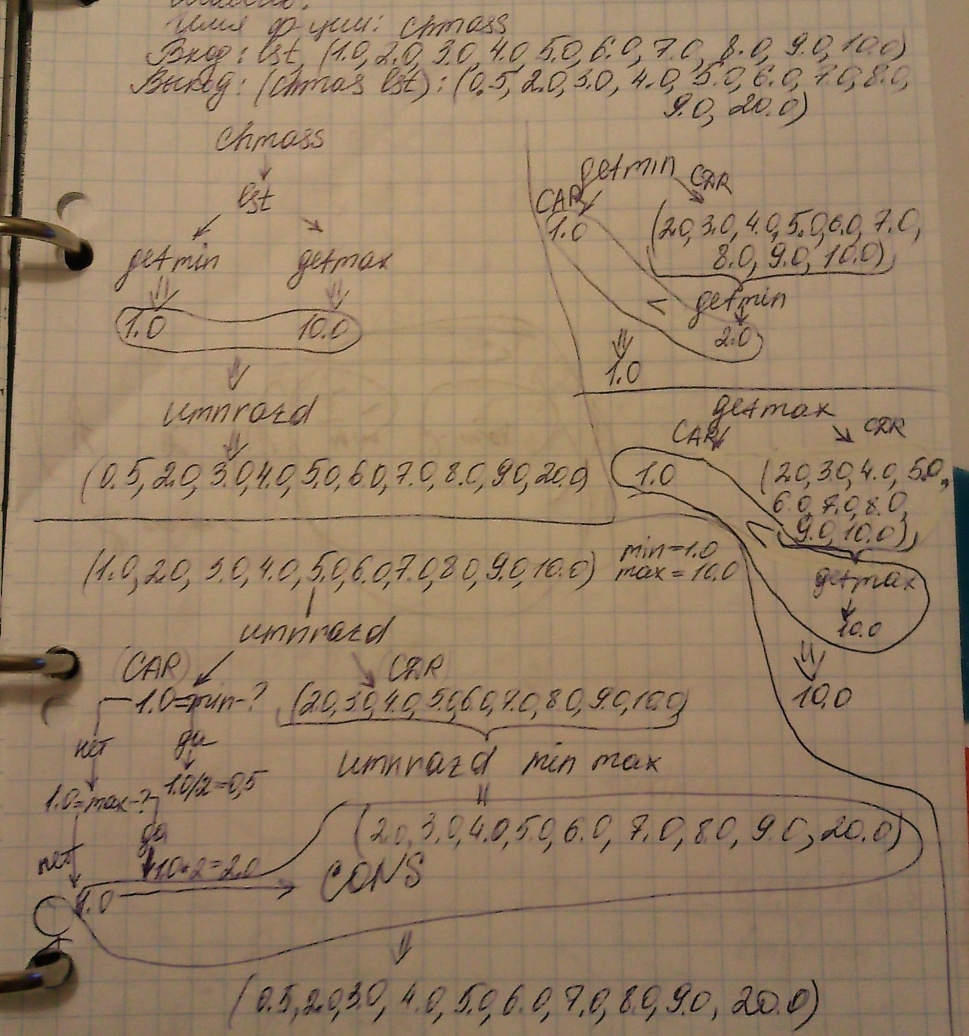 Имя ф-ции: chmass
Вход: lst, (1.0, 2.0, 3.0, 4.0, 5.0, 6.0, 7.0, 8.0, 9.0, 10.0)
Выход: (chmas lst): (0.5, 2.0, 3.0, 4.0, 5.0, 6.0, 7.0, 8.0,
9.0, 20.0)
chmass
lst
getmin getmax
1.0 10.0
umnrazd
(0.5, 2.0, 3.0, 4.0, 5.0, 6.0, 7.0, 8.0, 9.0, 20.0)
getmin
CAR CDR
1.0 (2.0, 3.0, 4.0, 5.0, 6.0, 7.0,
8.0, 9.0, 10.0)
< getmin
2.0
1.0
getmax
CAR CDR
1.0 (2.0, 3.0, 4.0, 5.0,
6.0, 7.0, 8.0,
9.0, 10.0)
<
getmax
10.0
10.0
(1.0, 2.0, 3.0, 4.0, 5.0, 6.0, 7.0, 8.0, 9.0, 10.0) min=1.0
max=10.0
umnrazd
(CAR) CDR
1.0=min-? (2.0, 3.0, 4.0, 5.0, 6.0, 7.0, 8.0, 9.0, 10.0)
нет да
umnrazd min max
1.0=max-? 1.0/2=0,5
(2.0, 3.0, 4.0, 5.0, 6.0, 7.0, 8.0, 9.0, 20.0)
нет да
1.0*2=2.0
1.0 CONS
(0.5, 2.0, 3.0, 4.0, 5.0, 6.0, 7.0, 8.0, 9.0, 20.0)